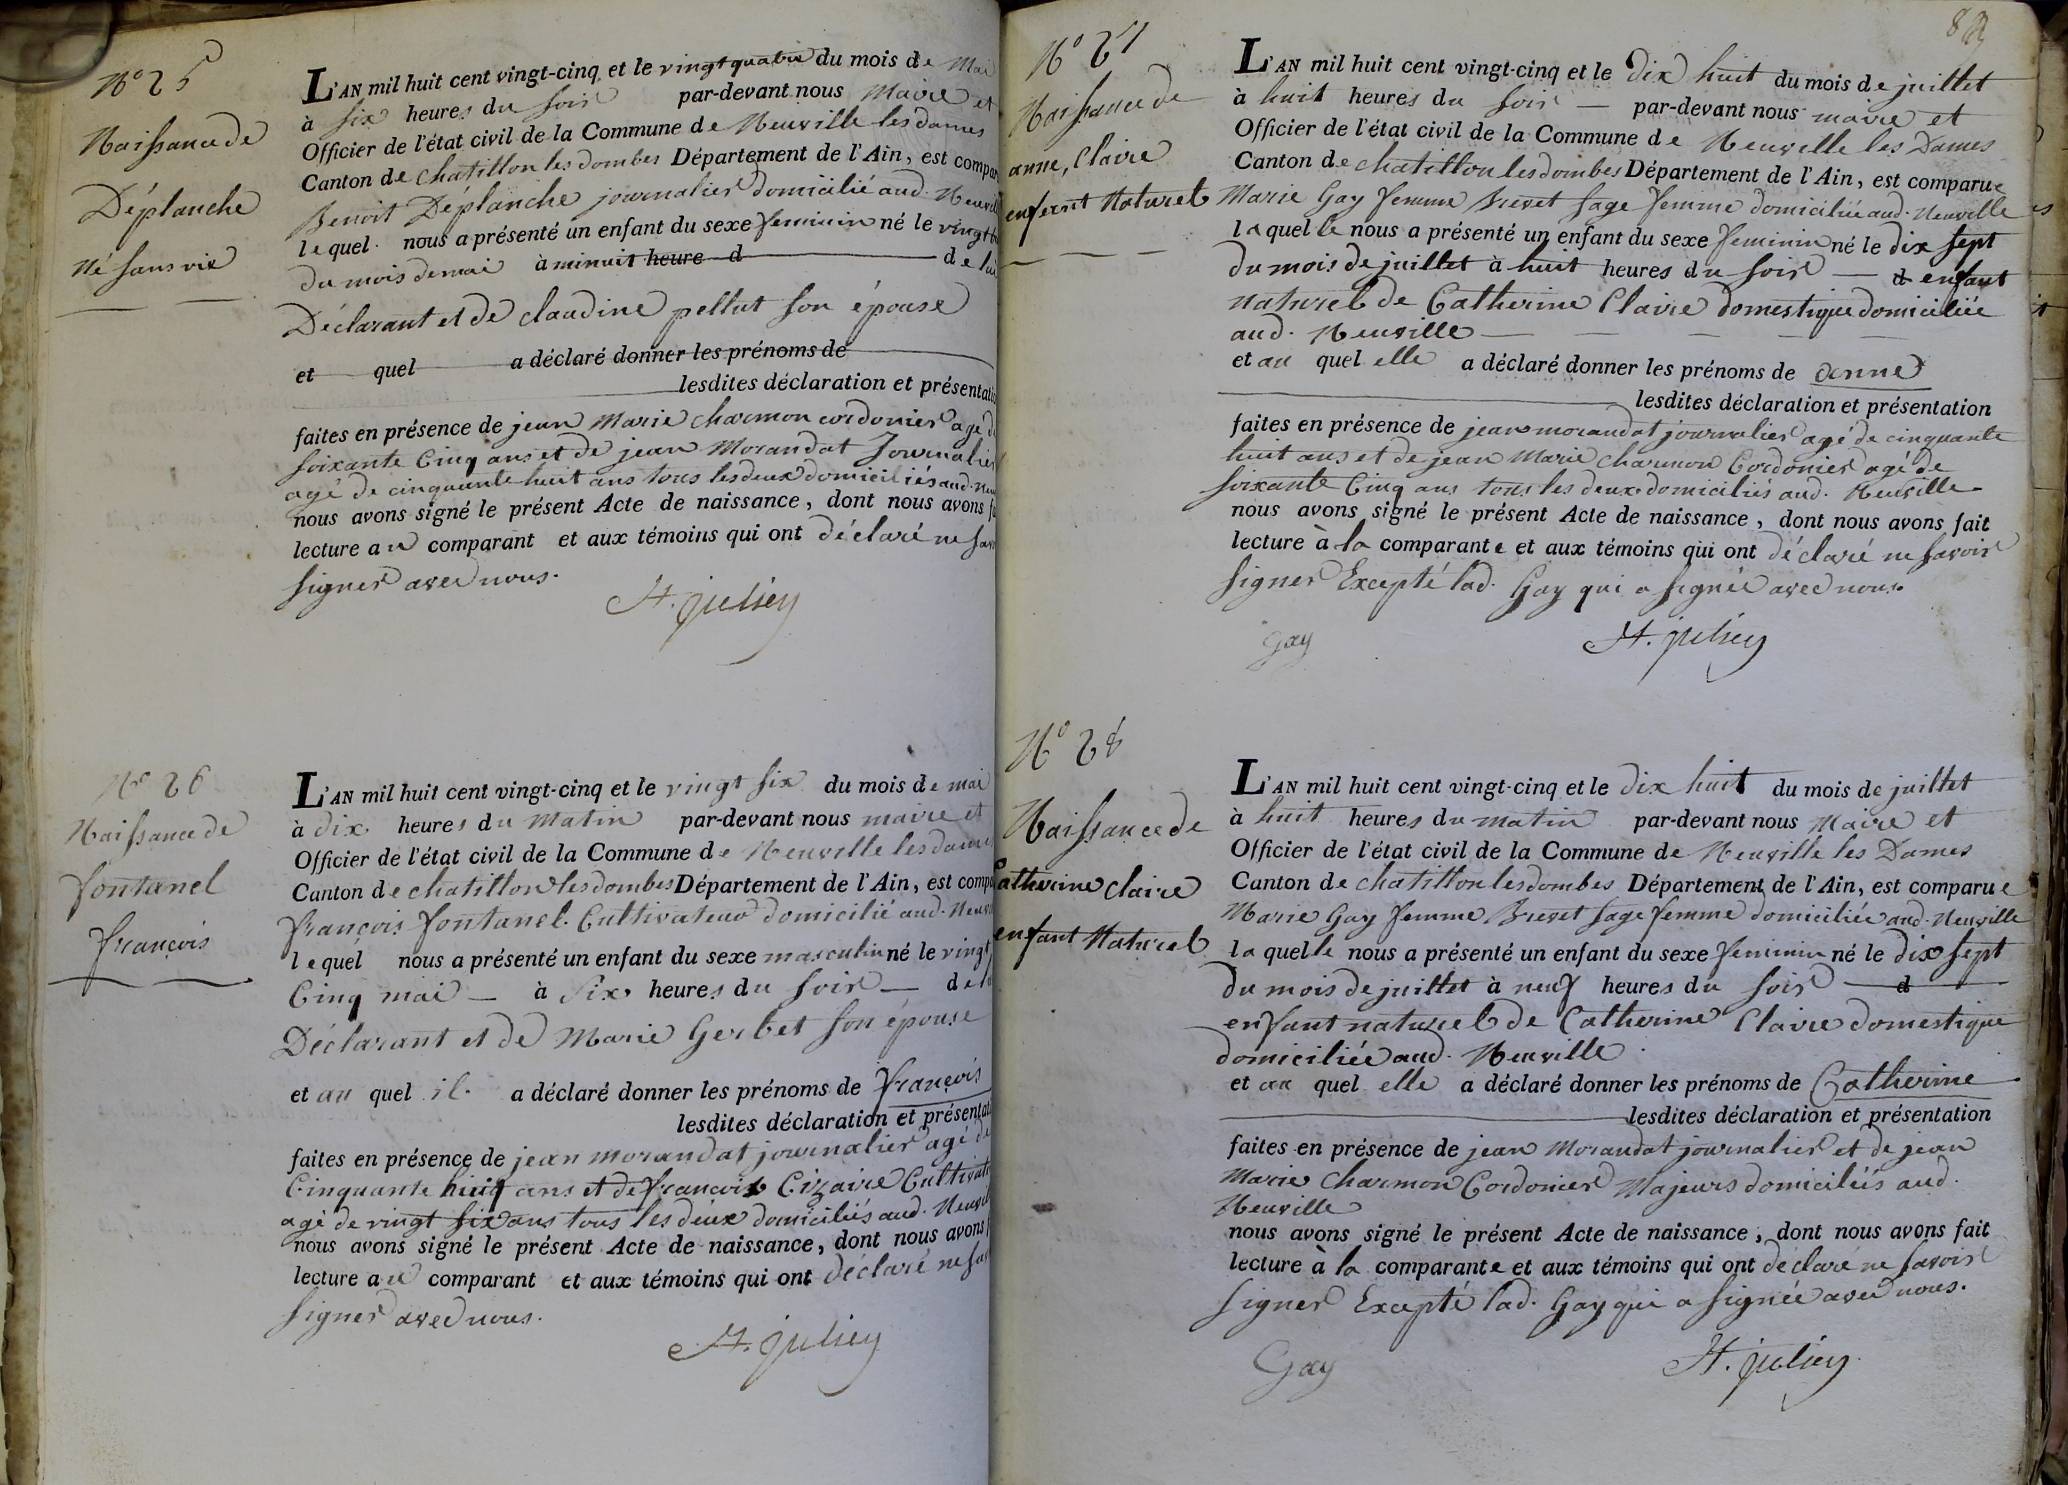 N.o 25
Naissance de
Déplanche
Né sans vie
L'AN mil huit cent vingt-cinq et le vingt quatre du mois de Mai
à six heures du soir par-devant nous Maire et
Officier de l'état civil de la Commune de Neuville les dames
Canton de chatillon les dombes Département de l'Ain, est compar
Benoit Déplanche journalier domicilié aud. Neuvil
lequel nous a présenté un enfant du sexe feminin né le vingt
du mois de mai à minuit heure d de lui
Déclarant et de claudine pellut son épouse
et quel a déclaré donner les prénoms de
lesdites déclaration et présentatio
faites en présence de jean Marie charmon cordonier agé de
soixante Cinq ans et de jean Morandat Journalier
agé de cinquante huit ans tous les deux domiciliés aud. Neu
nous avons signé le présent Acte de naissance, dont nous avons fa
lecture au comparant et aux témoins qui ont déclaré ne savo
signer avec nous.
H. julien
N.o 26
Naissance de
fontanel
françois
L'AN mil huit cent vingt-cinq et le vingt six du mois de mai
à dix heures du Matin par-devant nous maire et
Officier de l'état civil de la Commune de Neuville les dames
Canton de chatillon les dombes Département de l'Ain, est compa
françois fontanel Cultivateur domicilié aud. Neuvi
lequel nous a présenté un enfant du sexe masculin né le vingt
Cinq mai à six heures du soir de lui
Déclarant et de Marie Gerbet son épouse
et au quel il a déclaré donner les prénoms de françois
lesdites déclaration et présentati
faites en présence de jean morandat journalier agé de
Cinquante huit ans et de françois Cizaire Cultivate
agé de vingt six ans tous les deux domiciliés aud. Neuvil
nous avons signé le présent Acte de naissance, dont nous avons
lecture au comparant et aux témoins qui ont déclaré ne sav
signer avec nous.
H. julien
N.o 27
Naissance de
anne, Claire
enfant Naturel
L'AN mil huit cent vingt-cinq et le dix huit du mois de juillet
à huit heures du soir par-devant nous maire et
Officier de l'état civil de la Commune de Neuville les Dames
Canton de chatillon les dombes Département de l'Ain, est comparue
Marie Gay femme Brevet sage femme domiciliée aud. Neuville
laquelle nous a présenté un enfant du sexe feminin né le dix sept
du mois de juillet à huit heures du soir d enfant
naturel de Catherine Claire domestique domiciliée
aud. Neuville
et au quel elle a déclaré donner les prénoms de anne
lesdites déclaration et présentation
faites en présence de jean morandat journalier agé de cinquante
huit ans et de jean Marie charmon Cordonier agé de
soixante Cinq ans tous les deux domiciliés aud. Neuville
nous avons signé le présent Acte de naissance, dont nous avons fait
lecture à la comparante et aux témoins qui ont déclaré ne savoir
signer Excepté lad. Gay qui a signée avec nous.
Gay H. julien
N.o 28
Naissance de
Catherine Claire
enfant Naturel
L'AN mil huit cent vingt-cinq et le dix huit du mois de juillet
à huit heures du matin par-devant nous Maire et
Officier de l'état civil de la Commune de Neuville les Dames
Canton de chatillon les dombes Département de l'Ain, est comparue
Marie Gay femme Brevet sage femme domiciliée aud. Neuville
laquelle nous a présenté un enfant du sexe feminin né le dix sept
du mois de juillet à neuf heures du soir d
enfant naturel de Catherine Claire domestique
domiciliée aud. Neuville
et au quel elle a déclaré donner les prénoms de Catherine
lesdites déclaration et présentation
faites en présence de jean Morandat journalier et de jean
Marie Charmon Cordonier Majeurs domiciliés aud.
Neuville
nous avons signé le présent Acte de naissance, dont nous avons fait
lecture à la comparante et aux témoins qui ont déclaré ne savoir
signer Excepté lad. Gay qui a signée avec nous.
Gay H. julien